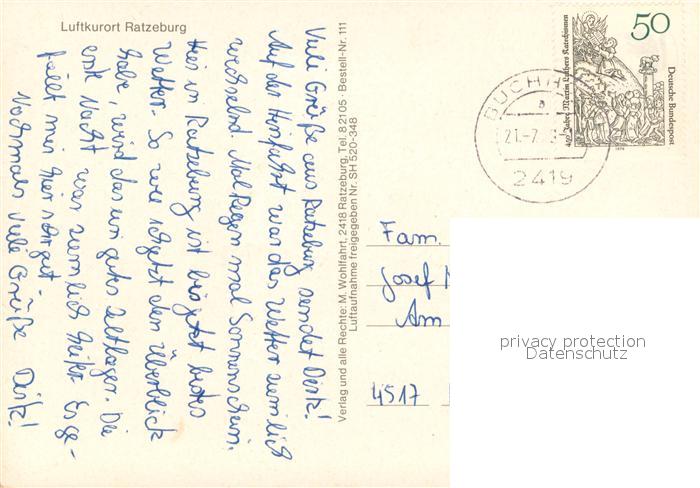 Luftkurort Ratzeburg
Viele Grüße aus Ratzeburg sendet Dirk!
Auf der Hinfahrt war das Wetter ziemlich
wechselnd Mal Regen mal Sonnenschein.
Hier in Ratzeburg ist bis jetzt
Wetter. So wie ich jetzt den Überblick
habe, wird das ein gutes Zeltlager. Die
erste Nacht war ziemlich heiter. Es ge-
fällt mir hier sehr gut -
Nochmals viele Grüße Dirk!
Verlag und alle Rechte: M. Wohlfahrt, 2418 Ratzeburg, Tel. 8 21 05 · Bestell-Nr. 111
Luftaufnahme freigegeben Nr. SH 520-348
50
Deutsche Bundespost
450 Jahre Martin Luthers Katechismen
1979
BUCHH
21.-7.
2419
Fam.
Josef
Am
4517
privacy protection
Datenschutz